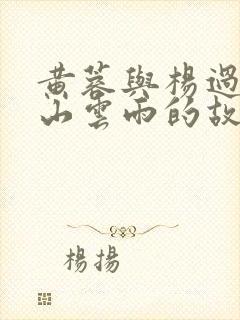 黄蓉與楊過
山雲雨的故
楊揚